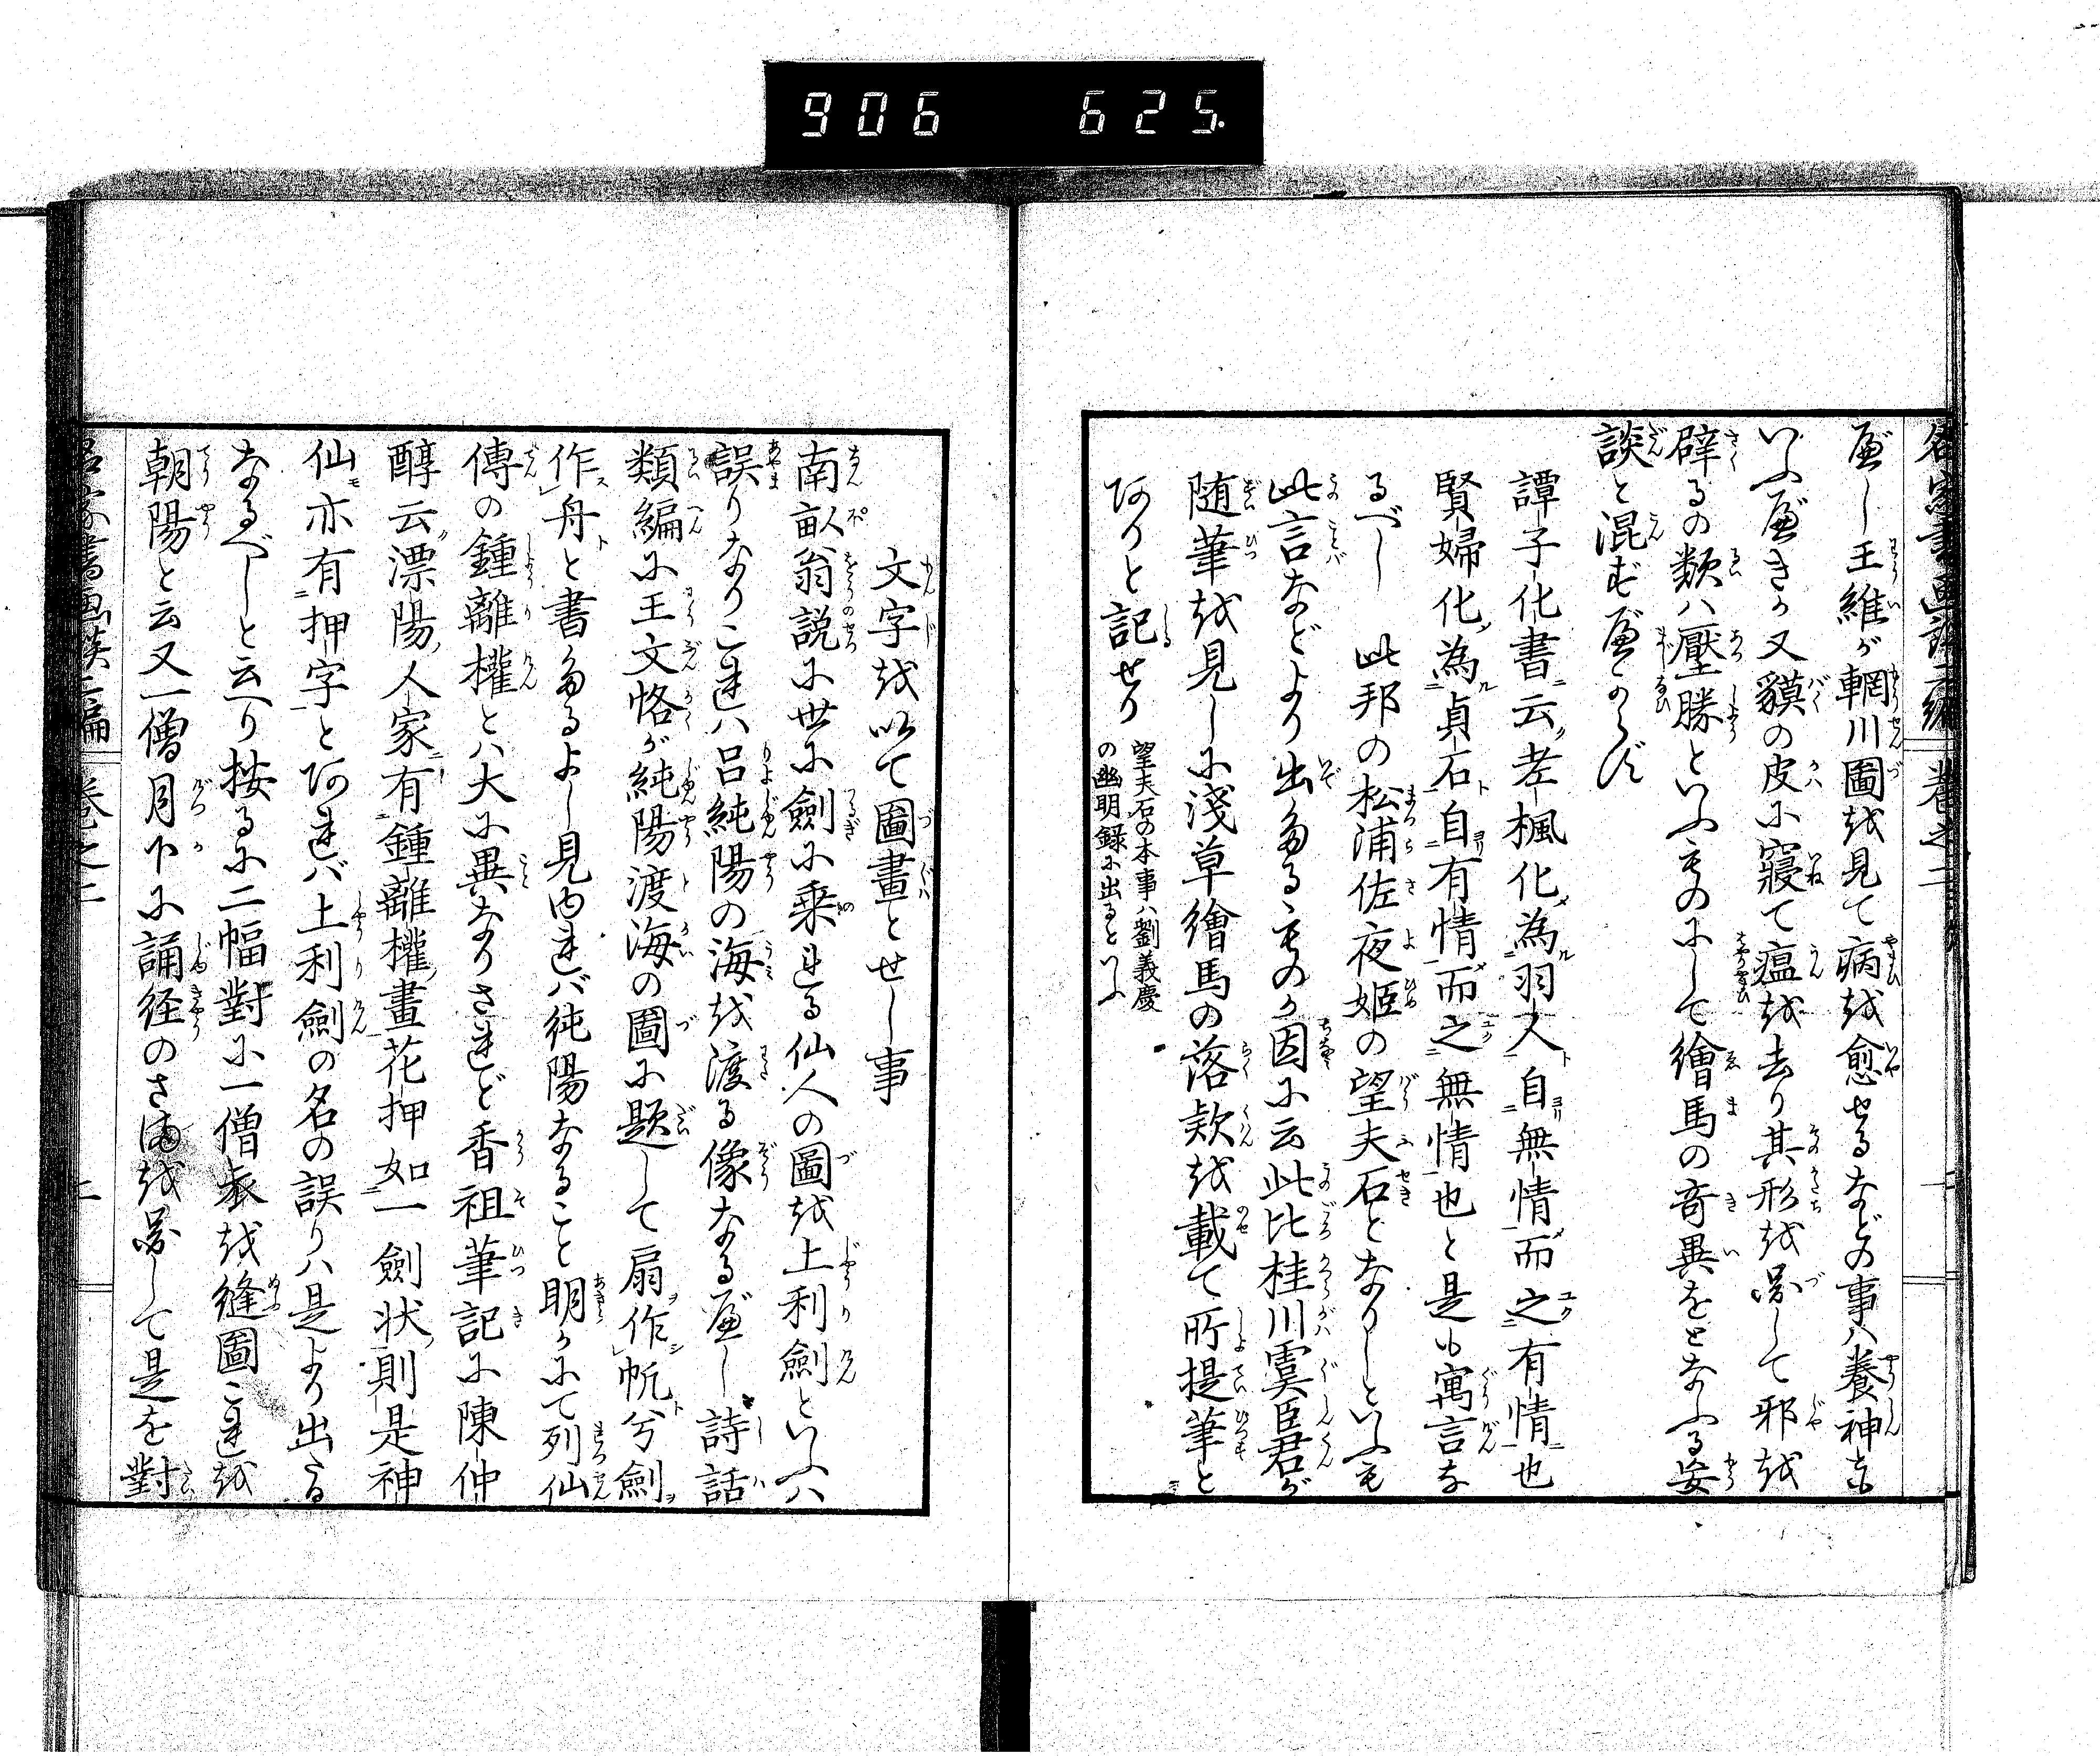 906 625.
名家書画談二編 巻之二
べし王維が輞川圖を見て病を愈せるなどの事ハ養神とも
いふべきか又貘の皮に寢て瘟を去り其形を圖して邪を
辟るの類ハ壓勝といふものにして繪馬の奇異をとなふる妄
談と混ずべからず
譚子化書云老楓化為羽人自無情而之有情也
賢婦化為貞石自有情而之無情也と是も寓言な
るべし 此邦の松浦佐夜姫の望夫石となりしといふも
此言などより出たるものか因に云此比桂川寞臣君が
随筆を見しに淺草繪馬の落款を載て所提筆と
ありと記せり 望夫石の本事ハ劉義慶
の幽明録に出るといふ
文字を以て圖畫とせし事
南畝翁説に世に劍に乗れる仙人の圖を上利劍といふハ
誤りなりこれハ呂純陽の海を渡る像なるべし詩話
類編に王文恪が純陽渡海の圖に題して扇作帆兮劍
作舟と書たるよし見内れバ純陽なること明かにて列仙
傳の鍾離權とハ大に異なりされど香祖筆記に陳仲
醇云漂陽人家有鍾離權畫花押如一劍状則是神
仙亦有押字とあれバ上利劍の名の誤りハ是より出たる
なるべしと云り按るに二幅對に一僧衣を縫圖これを
朝陽と云又一僧月下に誦経のさまを圖して是を對
名家書画談二編 巻之二 二